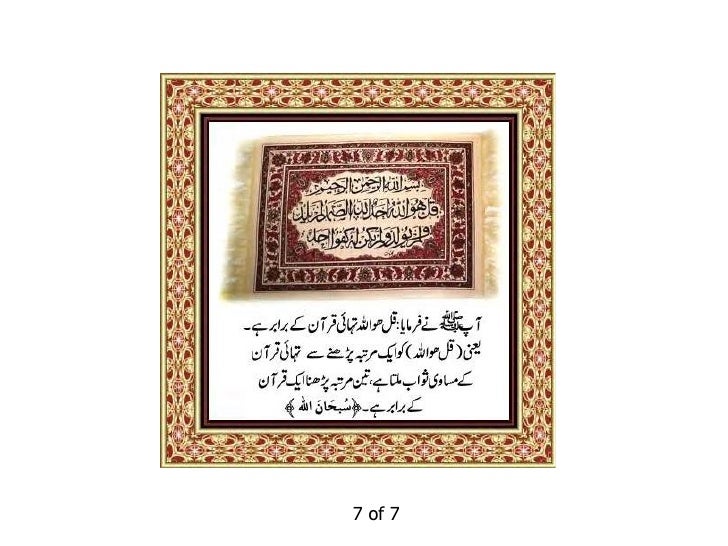 بسم الله الرحمن الرحيم
قل هو الله احد الله الصمد لم يلد
ولم يولد ولم يكن له كفوا احد
آپ ﷺ نے فرمایا: قل ھو اللہ تہائی قرآن کے برابر ہے۔
یعنی (قل ھو اللہ) کو ایک مرتبہ پڑھنے سے تہائی قرآن
کے مساوی ثواب ملتا ہے، تین مرتبہ پڑھنا ایک قرآن
کے برابر ہے۔ ﴿سُبحَانَ الله﴾
7 of 7